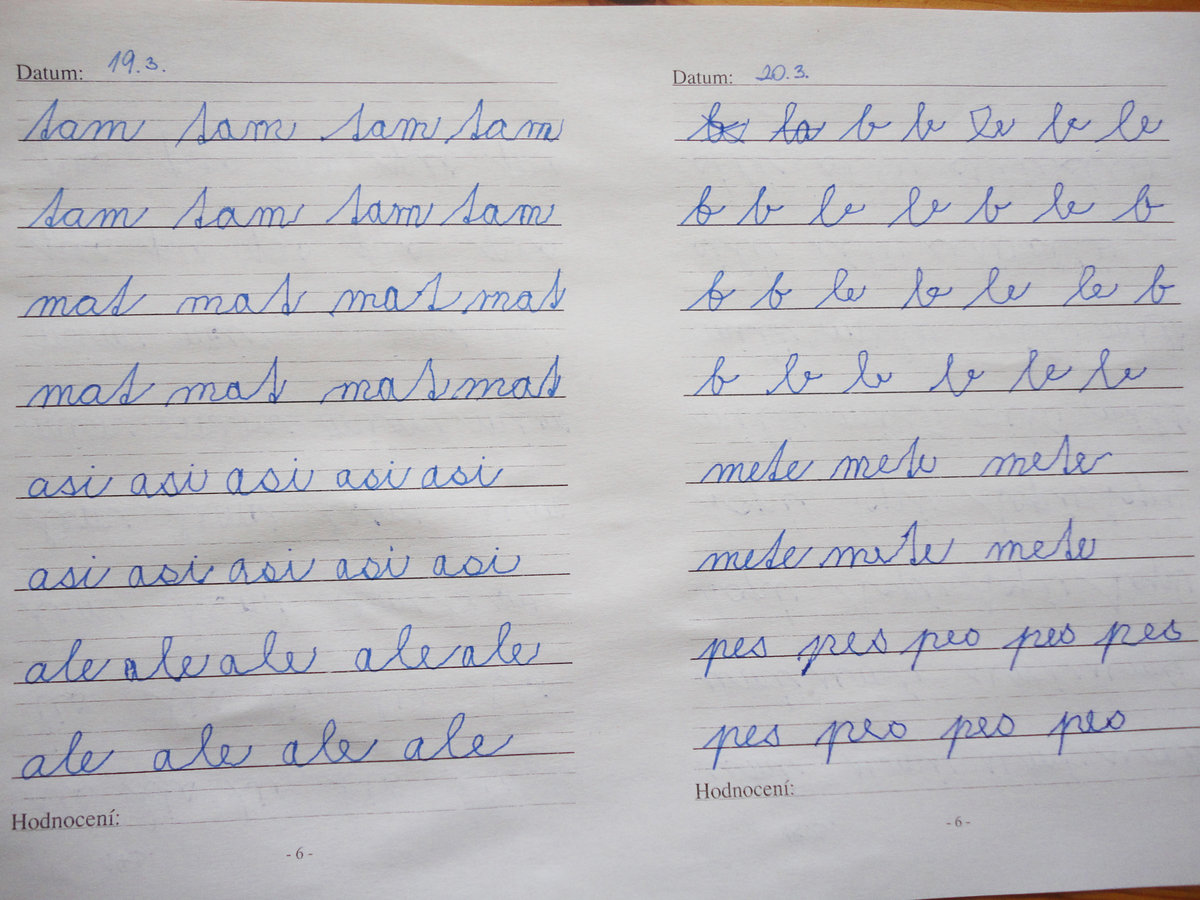 Datum: 19.3.
tam tam tam tam
tam tam tam tam
mat mat mat mat
mat mat mat mat
asi asi asi asi asi
asi asi asi asi asi
ale ale ale ale ale
ale ale ale ale
Hodnocení:
- 6 -
Datum: 20.3.
b b le le le
b b le le b le b
b b le b le le b
b le le le le le
mete mete mete
mete mete mete
pes pes pes pes pes
pes pes pes pes
Hodnocení:
- 6 -